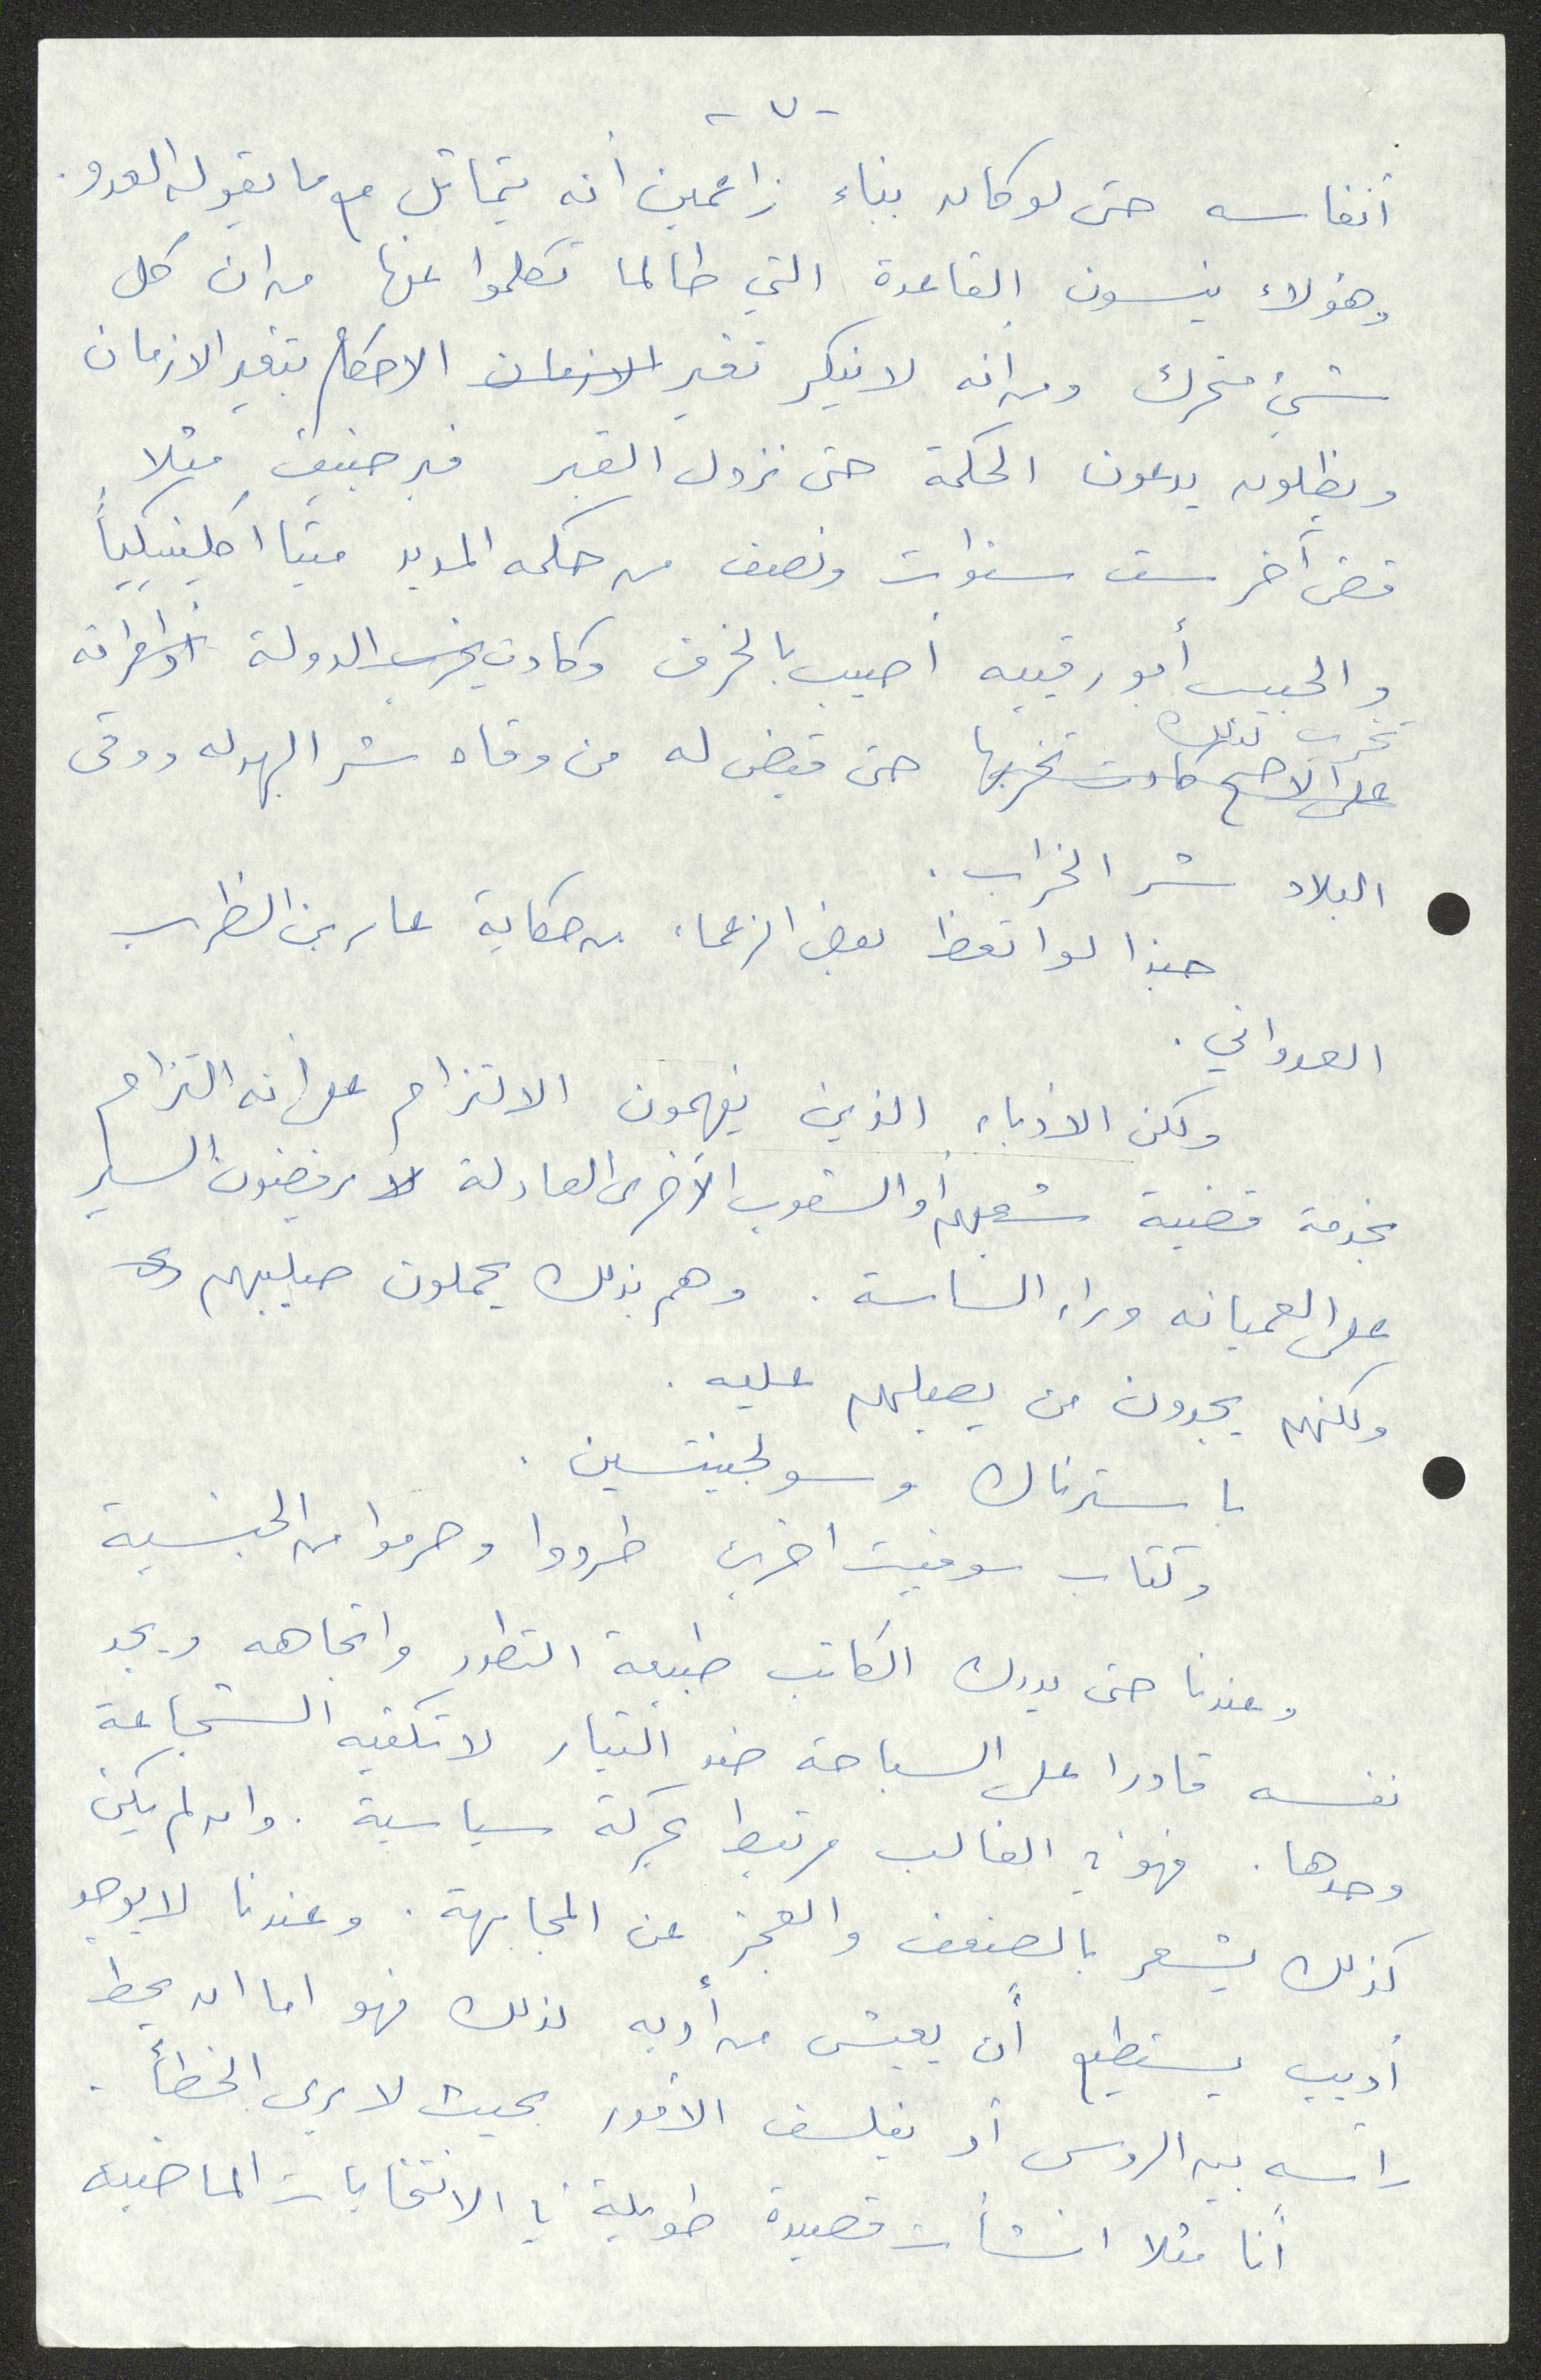 - ٧ -
أنفاسه حتى لو كان بناء زاعمين أنه يتماثل مع ما يقوله العدو.
وهؤلاء ينسون القاعدة التي طالما تكلموا عنها من ان كل
شيئ متحرك ومن انه لا ينكر تغير الازمان الاحكام بتغير الازمان
ويظلون يدعون الحكمة حتى نزول القبر فبرجنيف مثلا
قضى آخر ست سنوات ونصف من حكمه المديد ميتا اكلينيكياً
والحبيب أبورقيبه أصيب بالخرف وكادت يخرب الدولة أو امرأته
تخرب لذلك
على الاصح كادت تخربها حتى قيض له من وقاه شر البهدله ووقى
البلاد شر الخراب.
حبذا لو اتعظ بعض الزعماء من حكاية عامر بن الظرب
العدواني.
ولكن الادباء الذين يفهمون الالتزام على انه التزام
بخدمة قضية شعبهم أو الشعوب الأخرى العادلة لا يرفضون السير
على العميانه وراء الساسة. وهم بذلك يحملون صليبهم
ولكنهم يجدون من يصلبهم عليه.
باسترناك وسولجينتسين.
وكتاب سوفيت اخرين طردوا وحرموا من الجنسية
وعندنا حتى يدرك الكاتب طبيعة التطور واتجاهه ويجد
نفسه قادرا على السباحة ضد التيار لا تكفيه الشجاعة
وحدها. فهو في الغالب مرتبط بحركة سياسية. وان لم يكن
كذلك يشعر بالضعف والعجز عن المجابهة. وعندنا لا يوجد
أديب يستطيع أن يعيش من أدبه لذلك فهو اما ان يحط
راسه بين الروس أو يفلسف الأمور بحيث لا يرى الخطأ.
أنا مثلا انشأت قصيدة طويلة في الانتخابات الماضيه